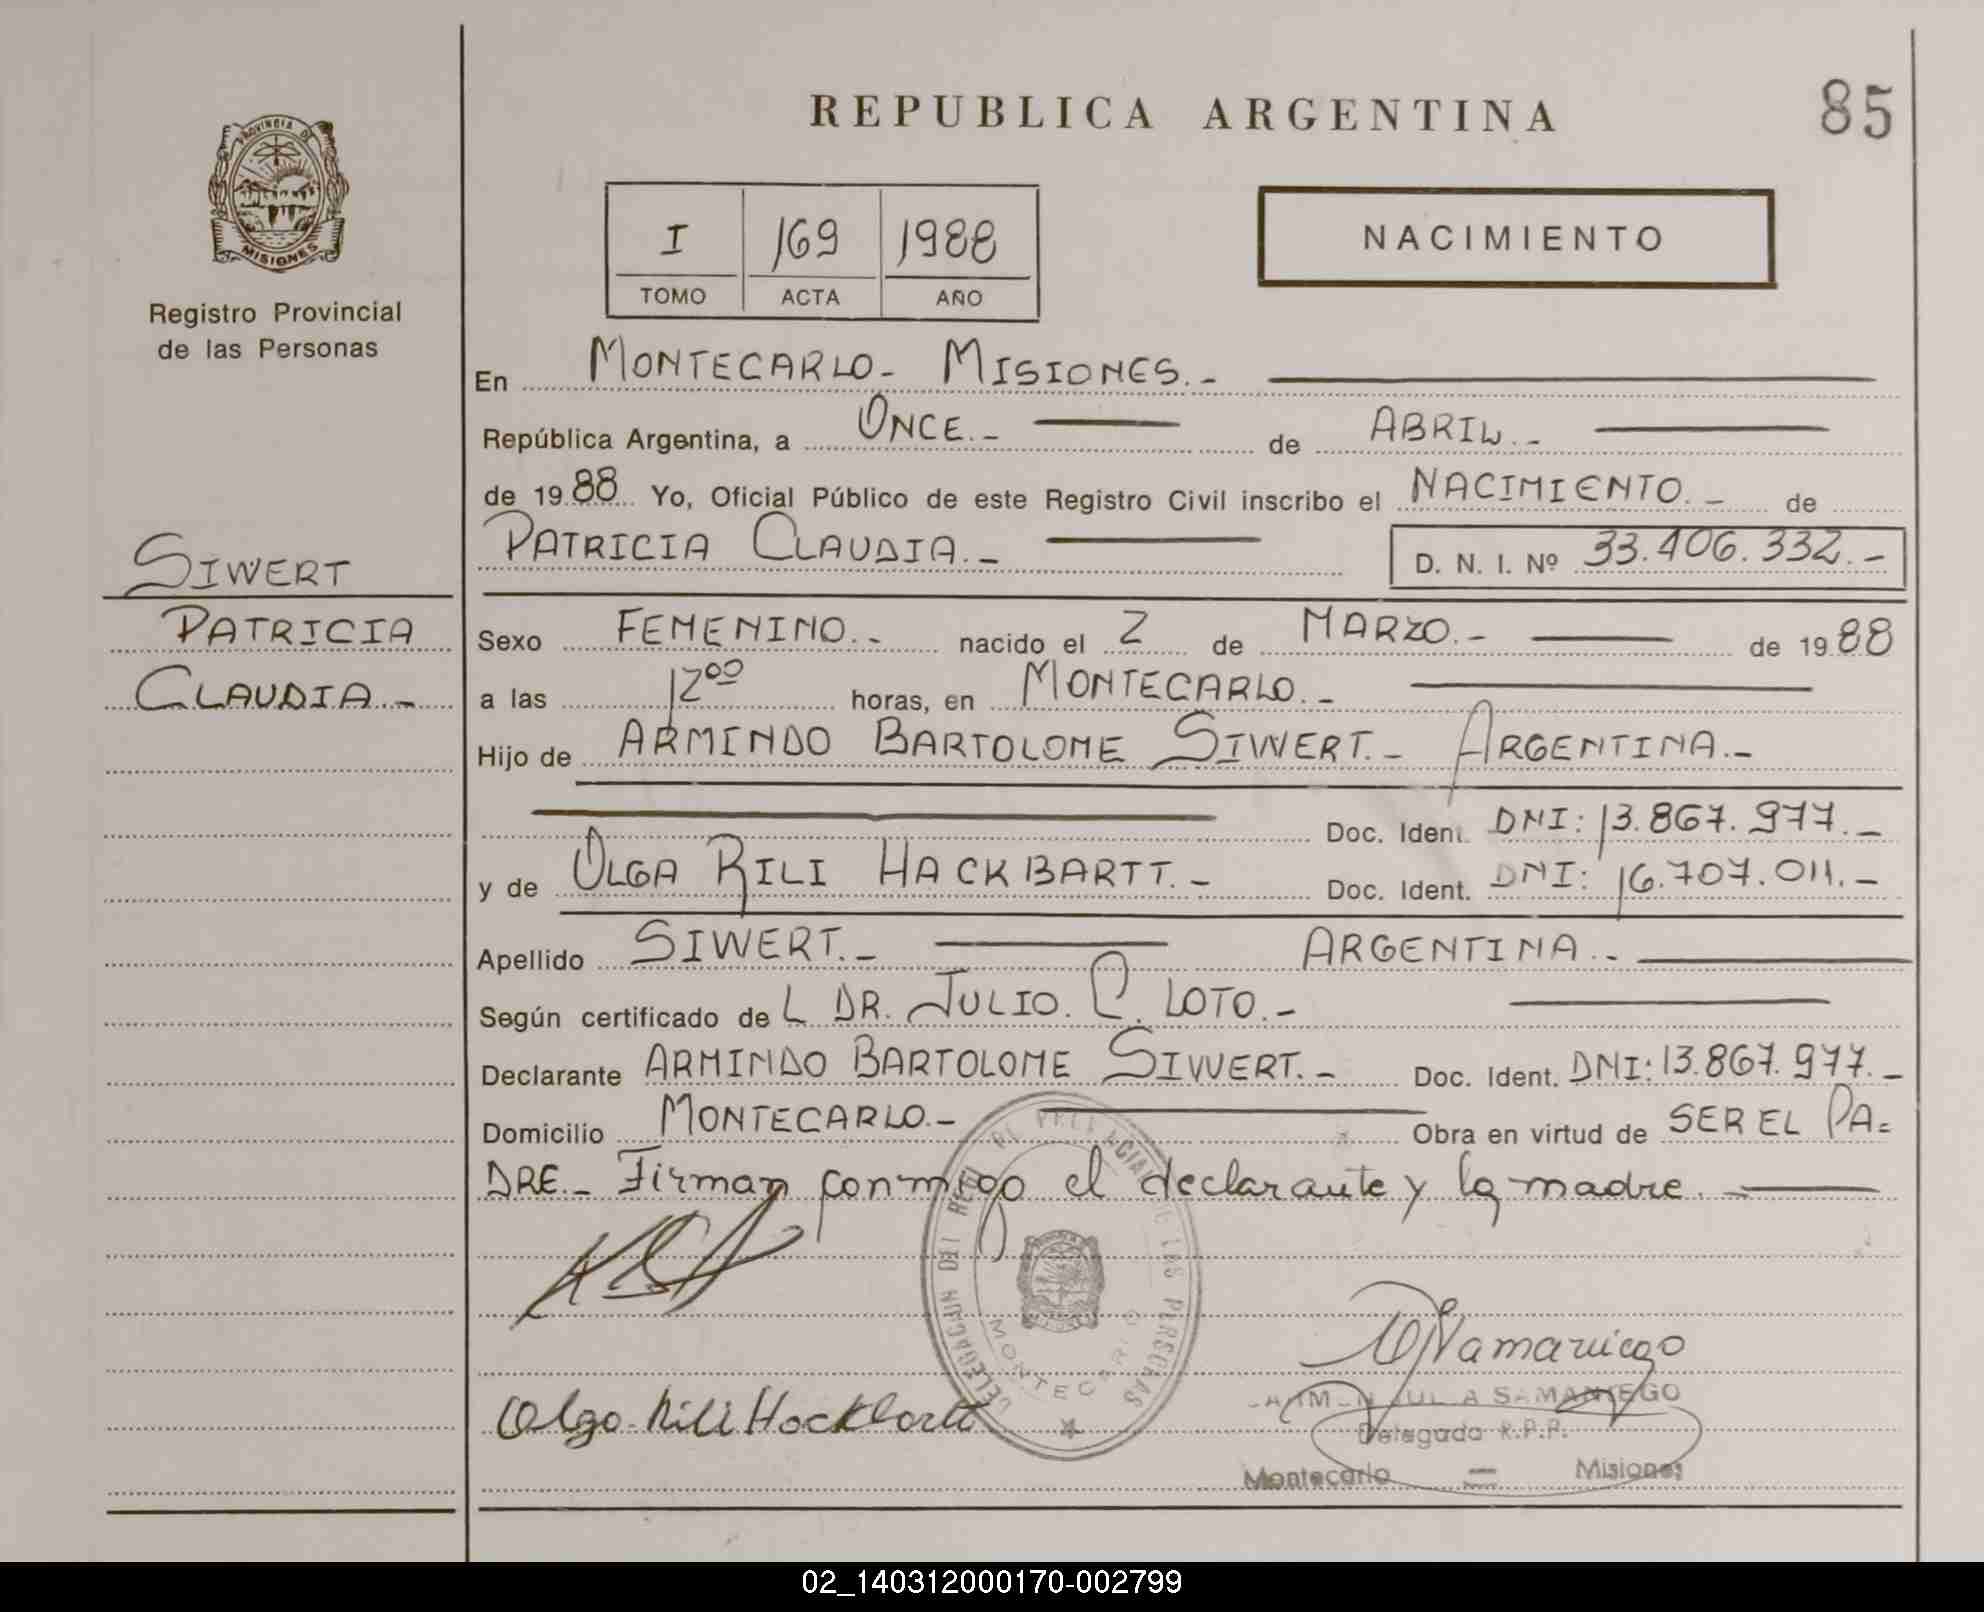 REPUBLICA ARGENTINA
85
PROVINCIA DE
MISIONES
Registro Provincial
de las Personas
I 169 1988
TOMO ACTA AÑO
NACIMIENTO
En MONTECARLO- MISIONES.-
República Argentina, a ONCE.- de ABRIL.-
de 1988 Yo, Oficial Público de este Registro Civil inscribo el NACIMIENTO.- de
PATRICIA CLAUDIA.- D. N. I. Nº 33.406.332.-
SIWERT
PATRICIA
CLAUDIA.-
Sexo FEMENINO.- nacido el 2 de MARZO.- de 1988
a las 12⁰⁰ horas, en MONTECARLO.-
Hijo de ARMINDO BARTOLOME SIWERT.- ARGENTINA.-
Doc. Ident. DNI: 13.867.977.-
y de OLGA RILI HACKBARTT.- Doc. Ident. DNI: 16.707.011.-
Apellido SIWERT.- ARGENTINA.-
Según certificado de L DR. JULIO. C. LOTO.-
Declarante ARMINDO BARTOLOME SIWERT.- Doc. Ident. DNI: 13.867.977.-
Domicilio MONTECARLO.- Obra en virtud de SER EL PA=
DRE.- Firman conmigo el declarante y la madre.-
DELEGACION DEL REG. PROVINCIAL DE LAS PERSONAS
MONTECARLO
Olga Rili Hackbartt
SAMANIEGO
Delegada R.P.P.
Montecarlo - Misiones
02_140312000170-002799